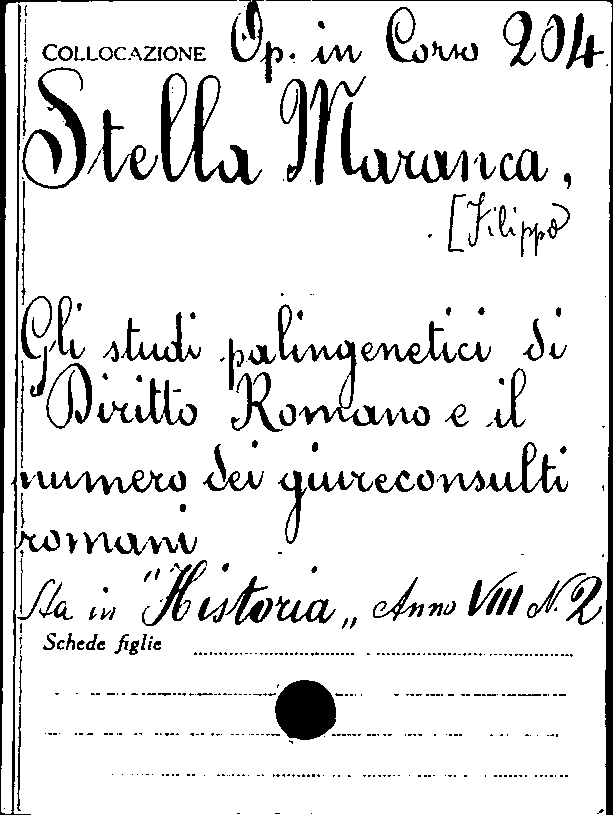 COLLOCAZIONE Op. in Corso 204
Stella Maranca,
[Filippo
Gli studi palingenetici di
Diritto Romano e il
numero dei giureconsulti
romani
Sta in "Historia„ Anno VIII N. 2
Schede figlie